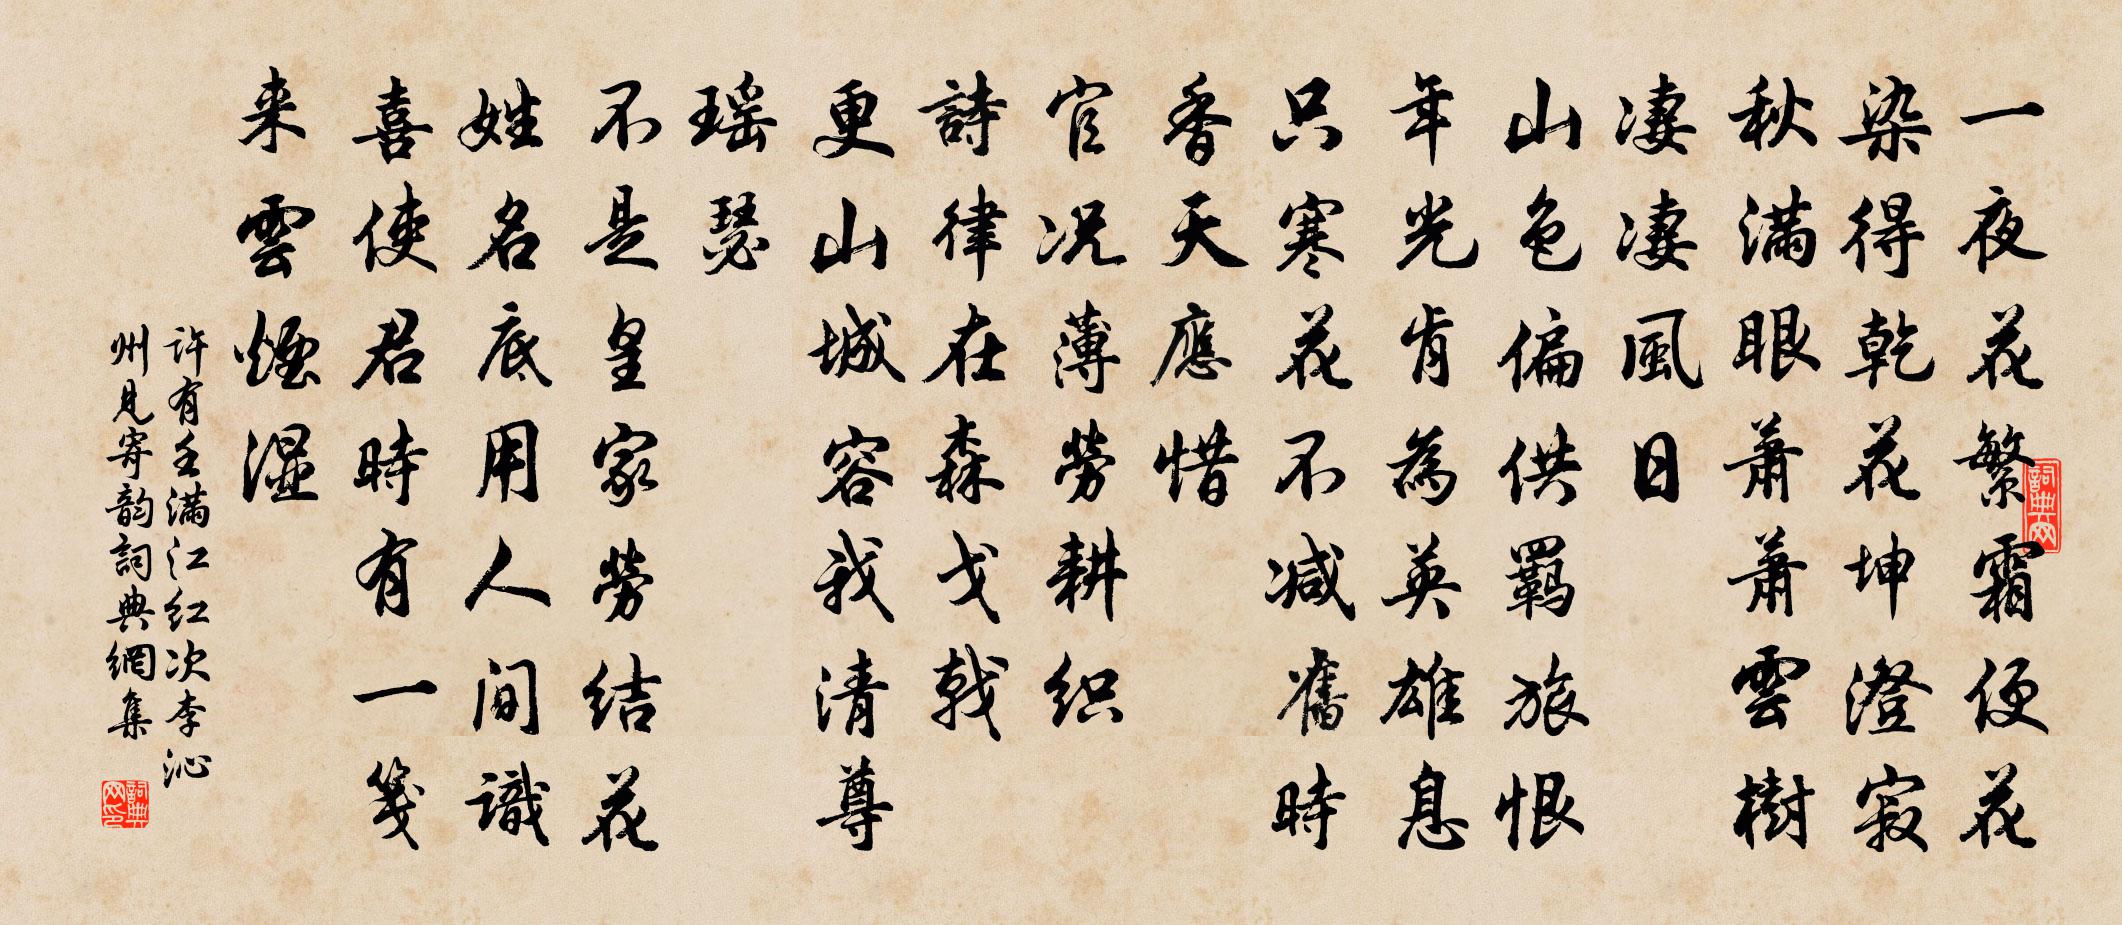 一夜花繁霜便花
染得乾花坤澄寂
秋滿眼蕭蕭雲樹
凄凄風日
山色偏供羈旅恨
年光肯為英雄息
只寒花不减舊時
香天應惜
官况薄勞耕织
詩律在森戈戟
更山城容我清尊
瑶瑟
不是皇家勞结花
姓名底用人间識
喜使君時有一箋
来雲煙濕
许有壬满江红次李沁
州見寄韵詞典網集
詞典网
詞典网印